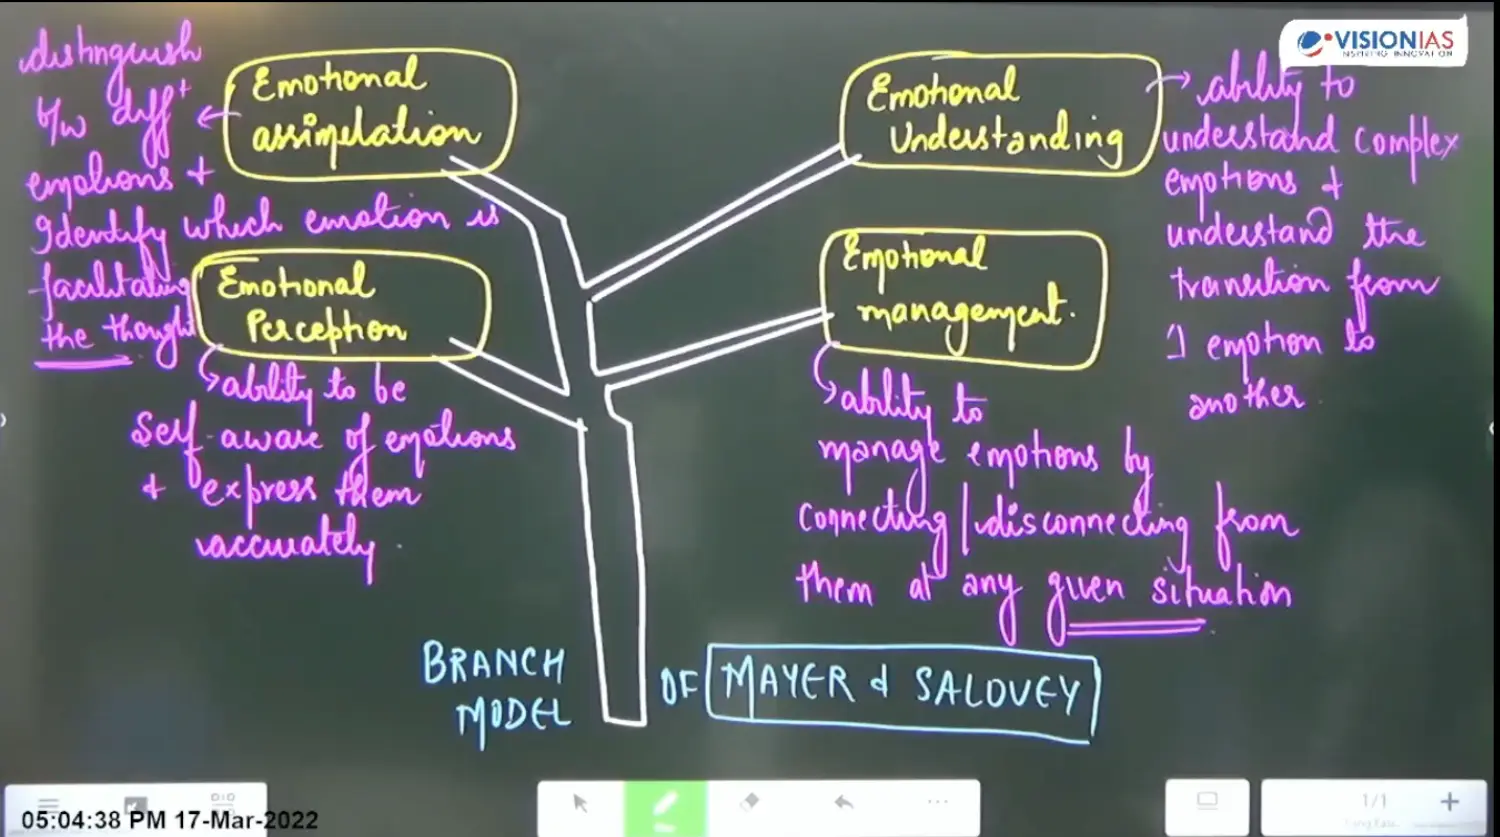 distinguish
b/w diff^t
emotions +
Identify which emotion is
facilitating
the thought
Emotional
assimilation
Emotional
Perception
ability to be
Self-aware of emotions
+ express them
accurately.
Emotional
Understanding
ability to
understand complex
emotions &
understand the
transition from
1 emotion to
another.
Emotional
management.
ability to
manage emotions by
connecting/disconnecting from
them at any given situation
BRANCH
MODEL
OF MAYER & SALOVEY
VISIONIAS
INSPIRING INNOVATION
05:04:38 PM 17-Mar-2022
1/1